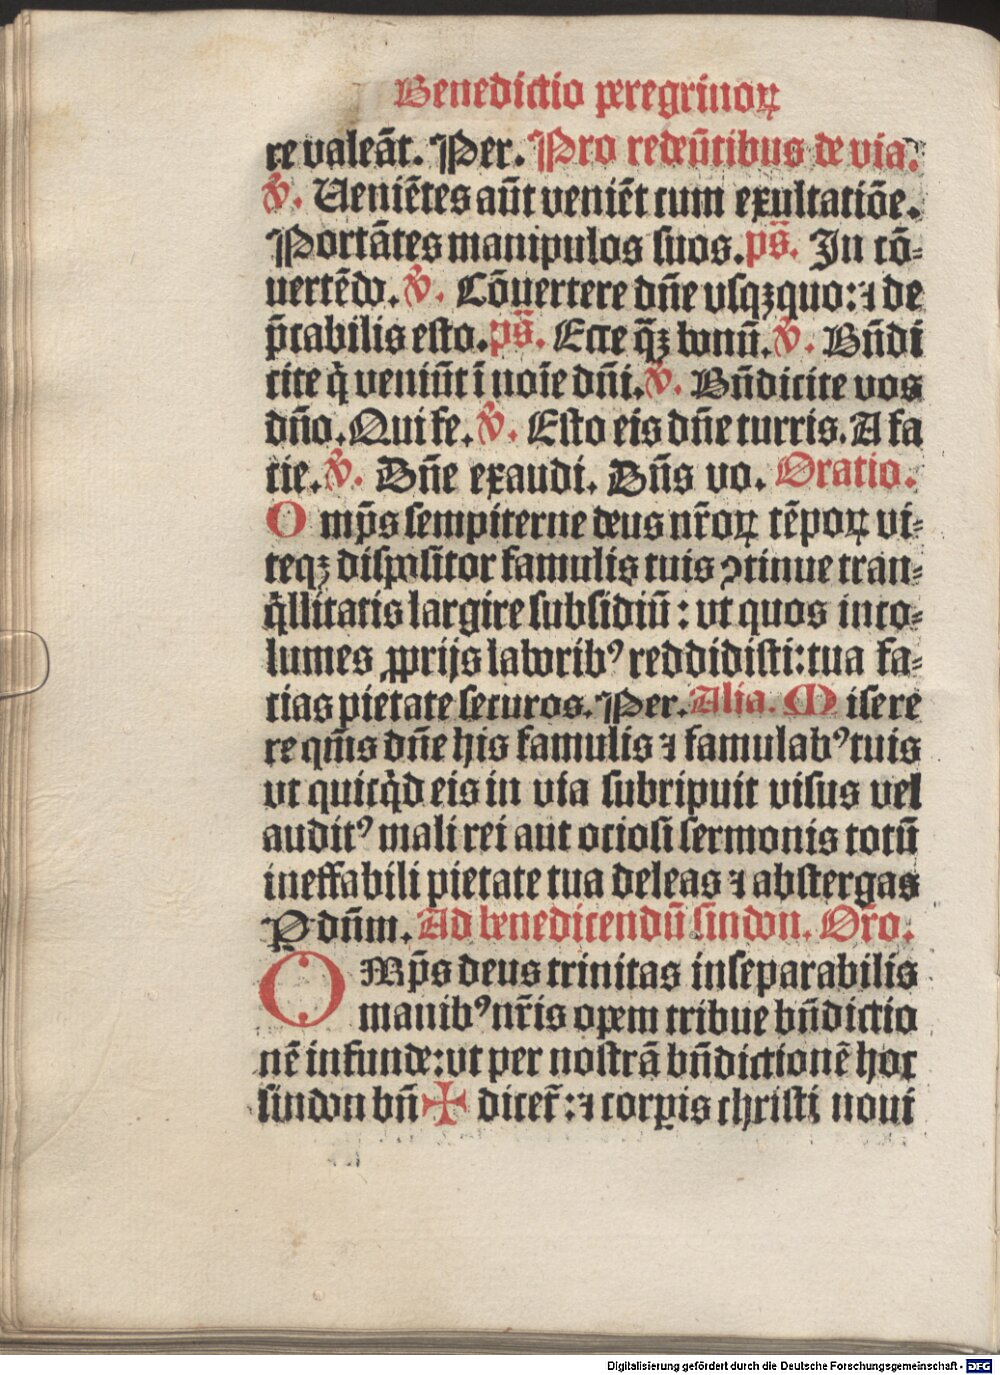 Benedictio peregrinoꝝ
re valeāt. Per. Pro redeūtibus de via.
℣. Ueniētes aūt veniēt cum exultatiōe.
Portātes manipulos suos. ps̄. In cō⸗
uertēdo. ℣. Cōuertere dn̄e vsqꝫquo: ⁊ de
p̄cabilis esto. ps̄. Ecce q̄ꝫ bonū. ℣. Bn̄di
cite q̇ veniūt ī noīe dn̄i. ℣. Bn̄dicite vos
dn̄o. Qui fe. ℣. Esto eis dn̄e turris. A fa
cie. ℣. Dn̄e exaudi. Dn̄s vo. Oratio.
O mp̄s sempiterne deus nr̄oꝝ tēpoꝝ vi⸗
teqꝫ dispositor famulis tuis ꝯtinue tran⸗
q̇llitatis largire subsidiū: vt quos inco⸗
lumes ꝓprijs laboribꝰ reddidisti: tua fa⸗
cias pietate securos. Per. Alia. Misere
re qm̄s dn̄e his famulis ⁊ famulabꝰ tuis
vt quicq̇d eis in via subripuit visus vel
auditꝰ mali rei aut ociosi sermonis totū
ineffabili pietate tua deleas ⁊ abstergas
P dn̄m. Ad benedicendū sindon. Or̄o.
OMp̄s deus trinitas inseparabilis
manibꝰ nr̄is opem tribue bn̄dictio
nē infunde: vt per nostrā bn̄dictionē hoc
sindon bn̄ ✠ dicer̄: ⁊ corꝑis christi noui
Digitalisierung gefördert durch die Deutsche Forschungsgemeinschaft - DFG